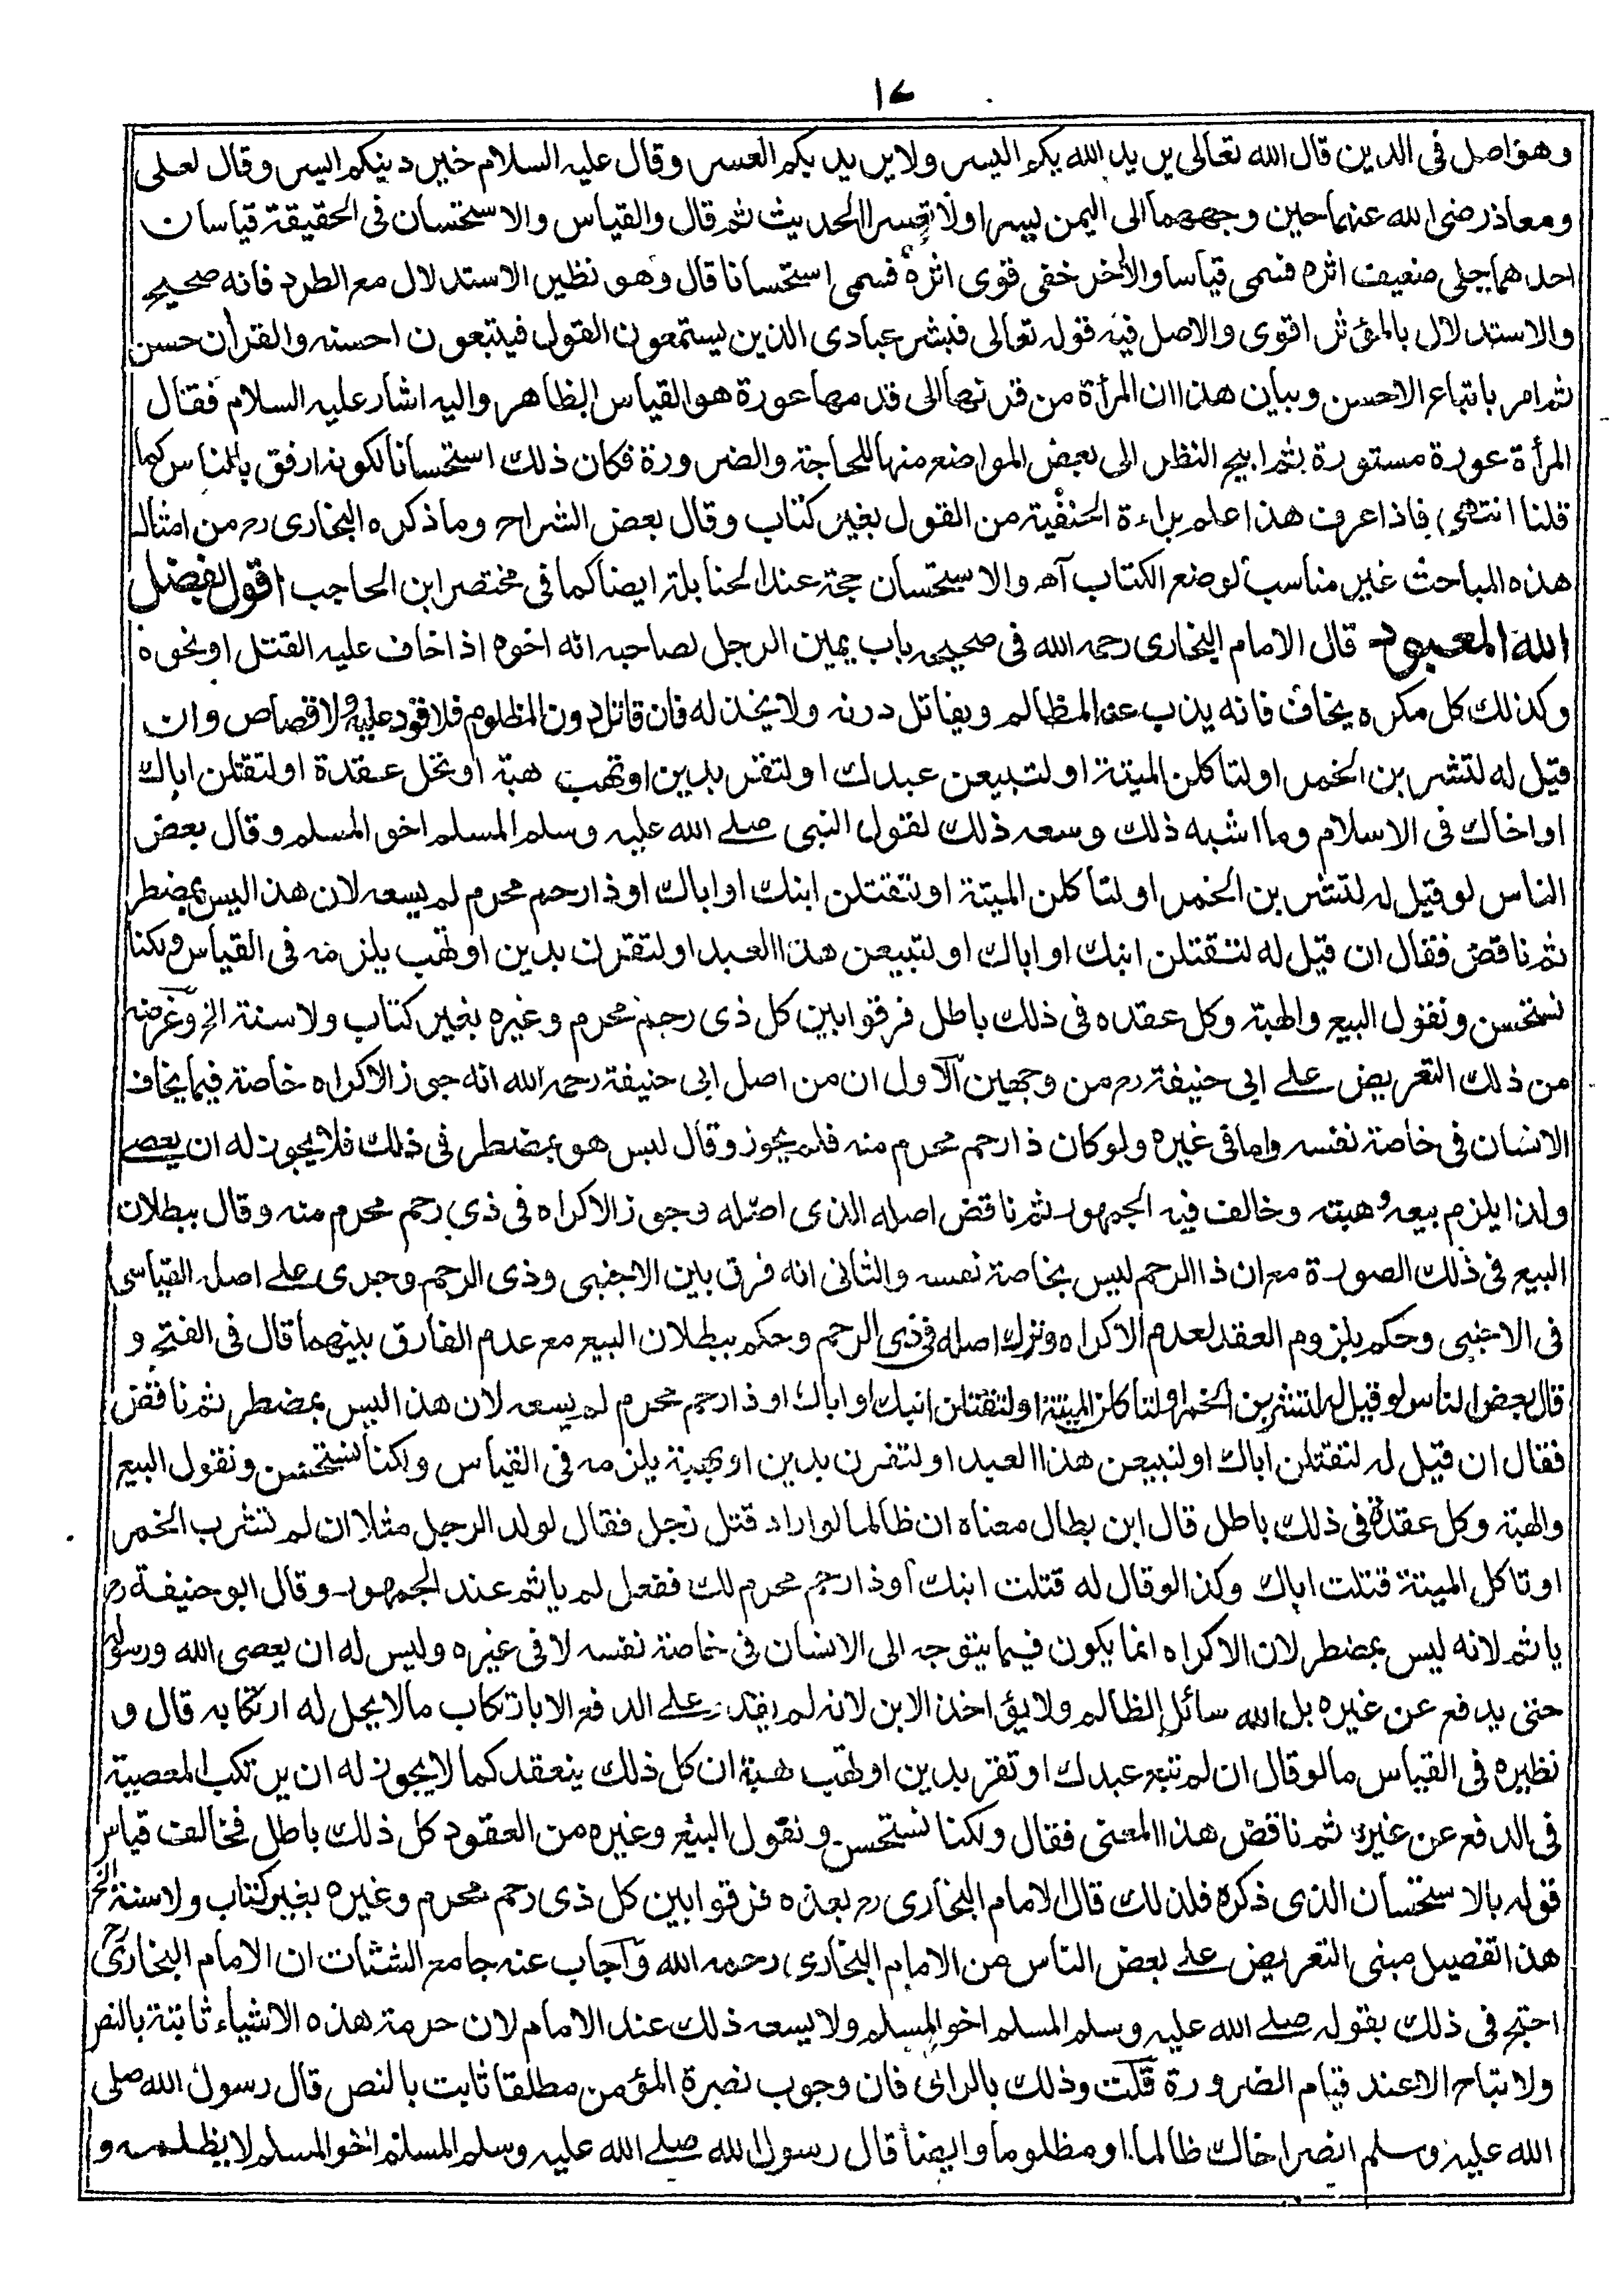 ١٧
وهو اصل فى الدين قال الله تعالى يريد الله بكم اليسر ولا يريد بكم العسر وقال عليه السلام خير دينكم اليسر وقال لعلى
ومعاذ رضى الله عنهما حين وجههما الى اليمن يسرا ولا تعسرا الحديث ثم قال والقياس والاستحسان فى الحقيقة قياسان
احدهما جلى ضعيف اثره فسمى قياسا والأخر خفى قوى اثره فسمى استحسانا قال وهو نظير الاستدلال مع الطرد فانه صحيح
والاستدلال بالمؤثر اقوى والاصل فيه قوله تعالى فبشر عبادى الذين يستمعون القول فيتبعون احسنه والقرأن حسن
ثم امر باتباع الاحسن وبيان هذا ان المرأة من قرنها الى قدمها عورة هو القياس الظاهر واليه اشار عليه السلام فقال
المرأة عورة مستورة ثم ابيح النظر الى بعض المواضع منها للحاجة والضرورة فكان ذلك استحسانا لكونه ارفق بالناس كما
قلنا انتهى فاذا عرف هذا علم براءة الحنفية من القول بغير كتاب وقال بعض الشراح وما ذكره البخارى رح من امثال
هذه المباحث غير مناسب لوضع الكتاب آه والاستحسان حجة عند الحنابلة ايضا كما فى مختصر ابن الحاجب اقول بفضل
الله المعبود قال الامام البخارى رحمه الله فى صحيحه باب يمين الرجل لصاحبه انه اخوه اذا خاف عليه القتل او نحوه
وكذلك كل مكره يخاف فانه يذب عنه المظالم ويقاتل دونه ولا يخذله فان قاتل دون المظلوم فلا قود عليه ولا قصاص وان
قيل له لتشربن الخمر او لتاكلن الميتة او لتبيعن عبدك او لتقر بدين او تهب هبة او تحل عقدة او لتقتلن اباك
او اخاك فى الاسلام وما اشبه ذلك وسعه ذلك لقول النبى صلے الله عليه وسلم المسلم اخو المسلم وقال بعض
الناس لو قيل له لتشربن الخمر او لتاكلن الميتة او لتقتلن ابنك او اباك او ذا رحم محرم لم يسعه لان هذا ليس بمضطر
ثم ناقض فقال ان قيل له لتقتلن ابنك او اباك او لتبيعن هذا العبد او لتقرن بدين او تهب يلزمه فى القياس ولكنا
نستحسن ونقول البيع والهبة وكل عقده فى ذلك باطل فرقوا بين كل ذى رحم محرم وغيره بغير كتاب ولا سنة الخ وغرضه
من ذلك التعريض علے ابى حنيفة رح من وجهين الاول ان من اصل ابى حنيفة رحمه الله انه جوز الاكراه خاصة فيما يخاف
الانسان فى خاصة نفسه واما فى غيره ولو كان ذا رحم محرم منه فلم يجوز وقال ليس هو بمضطر فى ذلك فلا يجوز له ان يعصے
ولذا يلزم بيعه وهبته وخالف فيه الجمهور ثم ناقض اصله الذى اصله وجوز الاكراه فى ذى رحم محرم منه وقال ببطلان
البيع فى ذلك الصورة مع ان ذا الرحم ليس بخاصة نفسه والثانى انه فرق بين الاجنبى وذى الرحم وجرى علے اصل القياس
فى الاجنبى وحكم بلزوم العقد لعدم الاكراه وترك اصله فى ذى الرحم وحكم ببطلان البيع مع عدم الفارق بينهما قال فى الفتح و
قال بعض الناس لو قيل له لتشربن الخمر او لتاكلن الميتة او لتقتلن ابنك او اباك او ذا رحم محرم لم يسعه لان هذا ليس بمضطر ثم ناقض
فقال ان قيل له لتقتلن اباك او لتبيعن هذا العبد او لتقرن بدين او بهبة يلزمه فى القياس ولكنا نستحسن ونقول البيع
والهبة وكل عقدة فى ذلك باطل قال ابن بطال معناه ان ظالما لو اراد قتل رجل فقال لولد الرجل مثلا ان لم تشرب الخمر
او تاكل الميتة قتلت اباك وكذا لو قال له قتلت ابنك او ذا رحم محرم لك ففعل لم ياثم عند الجمهور وقال ابو حنيفة رح
ياثم لانه ليس بمضطر لان الاكراه انما يكون فيما يتوجه الى الانسان فى خاصة نفسه لا فى غيره وليس له ان يعصى الله ورسوله
حتى يدفع عن غيره بل الله سائل الظالم ولا يؤاخذ الابن لانه لم يقدر علے الدفع الا بارتكاب ما لا يحل له ارتكابه قال و
نظيره فى القياس ما لو قال ان لم تبع عبدك او تقر بدين او تهب هبة ان كل ذلك ينعقد كما لا يجوز له ان يرتكب المعصية
فى الدفع عن غيره ثم ناقض هذا المعنى فقال ولكنا نستحسن ونقول البيع وغيره من العقود كل ذلك باطل فخالف قياس
قوله بالاستحسان الذى ذكره فلذلك قال الامام البخارى رح بعده فرقوا بين كل ذى رحم محرم وغيره بغير كتاب ولا سنة الخ
هذا تفصيل مبنى التعريض علے بعض الناس من الامام البخارى رحمه الله واجاب عنه جامع الشتات ان الامام البخارى رح
احتج فى ذلك بقوله صلے الله عليه وسلم المسلم اخو المسلم ولا يسعه ذلك عند الامام لان حرمة هذه الاشياء ثابتة بالنص
ولا تباح الا عند قيام الضرورة قلت وذلك بالرائ فان وجوب نصرة المؤمن مطلقا ثابت بالنص قال رسول الله صلى
الله عليه وسلم انصر اخاك ظالما او مظلوما وايضا قال رسول الله صلے الله عليه وسلم المسلم اخو المسلم لا يظلمه و